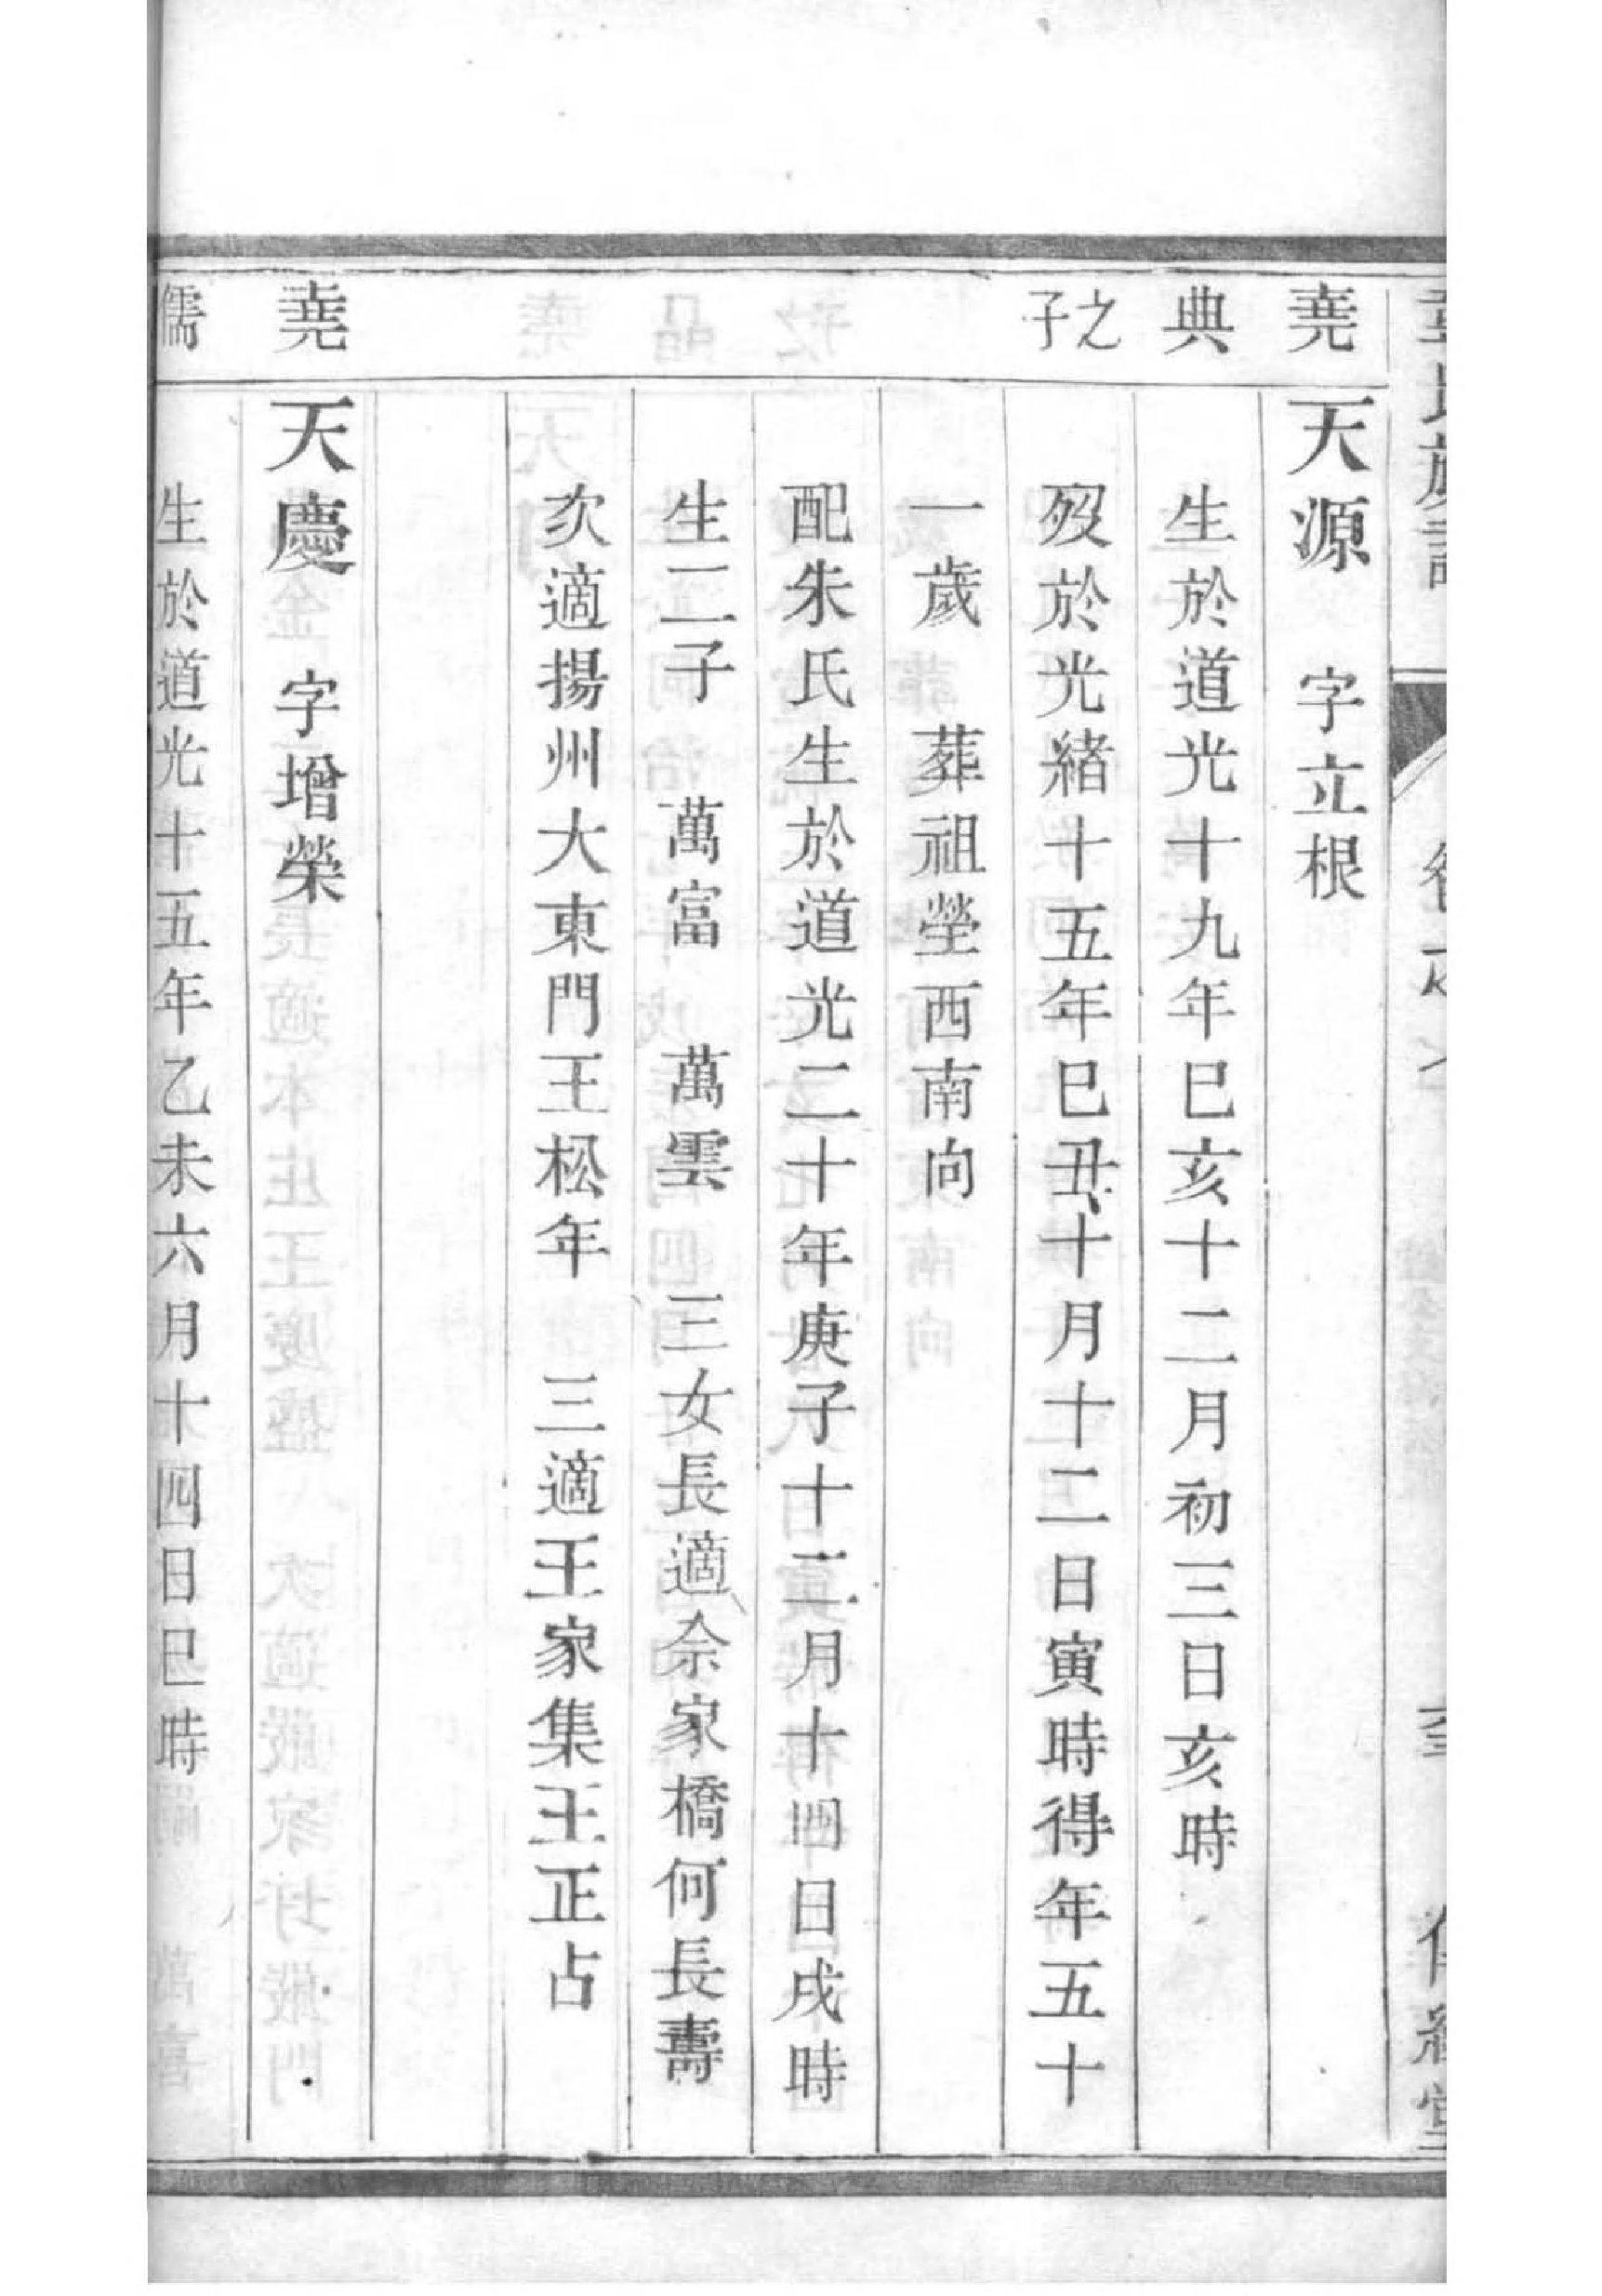 堯 天源 字立根
典 生於道光十九年巳亥十二月初三日亥時
之子 歿於光緒十五年巳丑十月十二日寅時得年五十
一歲 葬祖塋西南向
配朱氏生於道光二十年庚子十二月十四日戌時
生二子 萬富 萬雲 三女長適佘家橋何長壽
次適揚州大東門王松年 三適王家集王正占
堯 天慶 字增榮
儒 生於道光十五年乙未六月十四日巳時